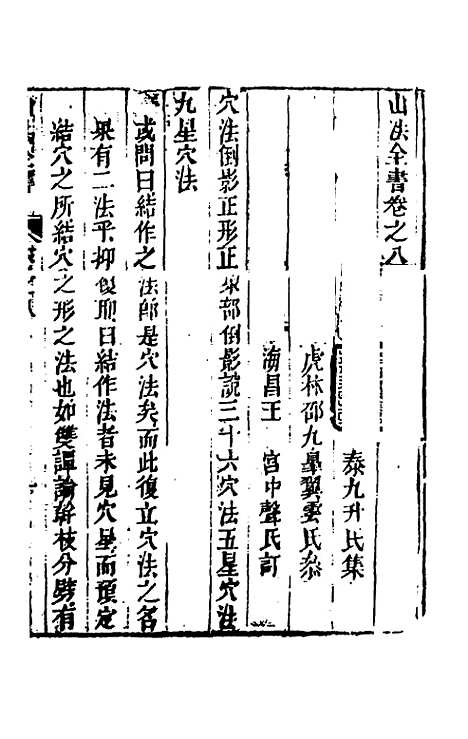 山法全書卷之八
泰九升氏集
虎林邵九臯翼雲氏參
海昌王 宮中聲氏訂
穴法倒影正形正脈部倒影說三十六穴法五星穴法
九星穴法
或問曰結作之法即是穴法矣而此復立穴法之名
果有二法乎抑復耶曰結作法者未見穴星而預定
結穴之所結穴之形之法也如雙譚論幹枝分劈有